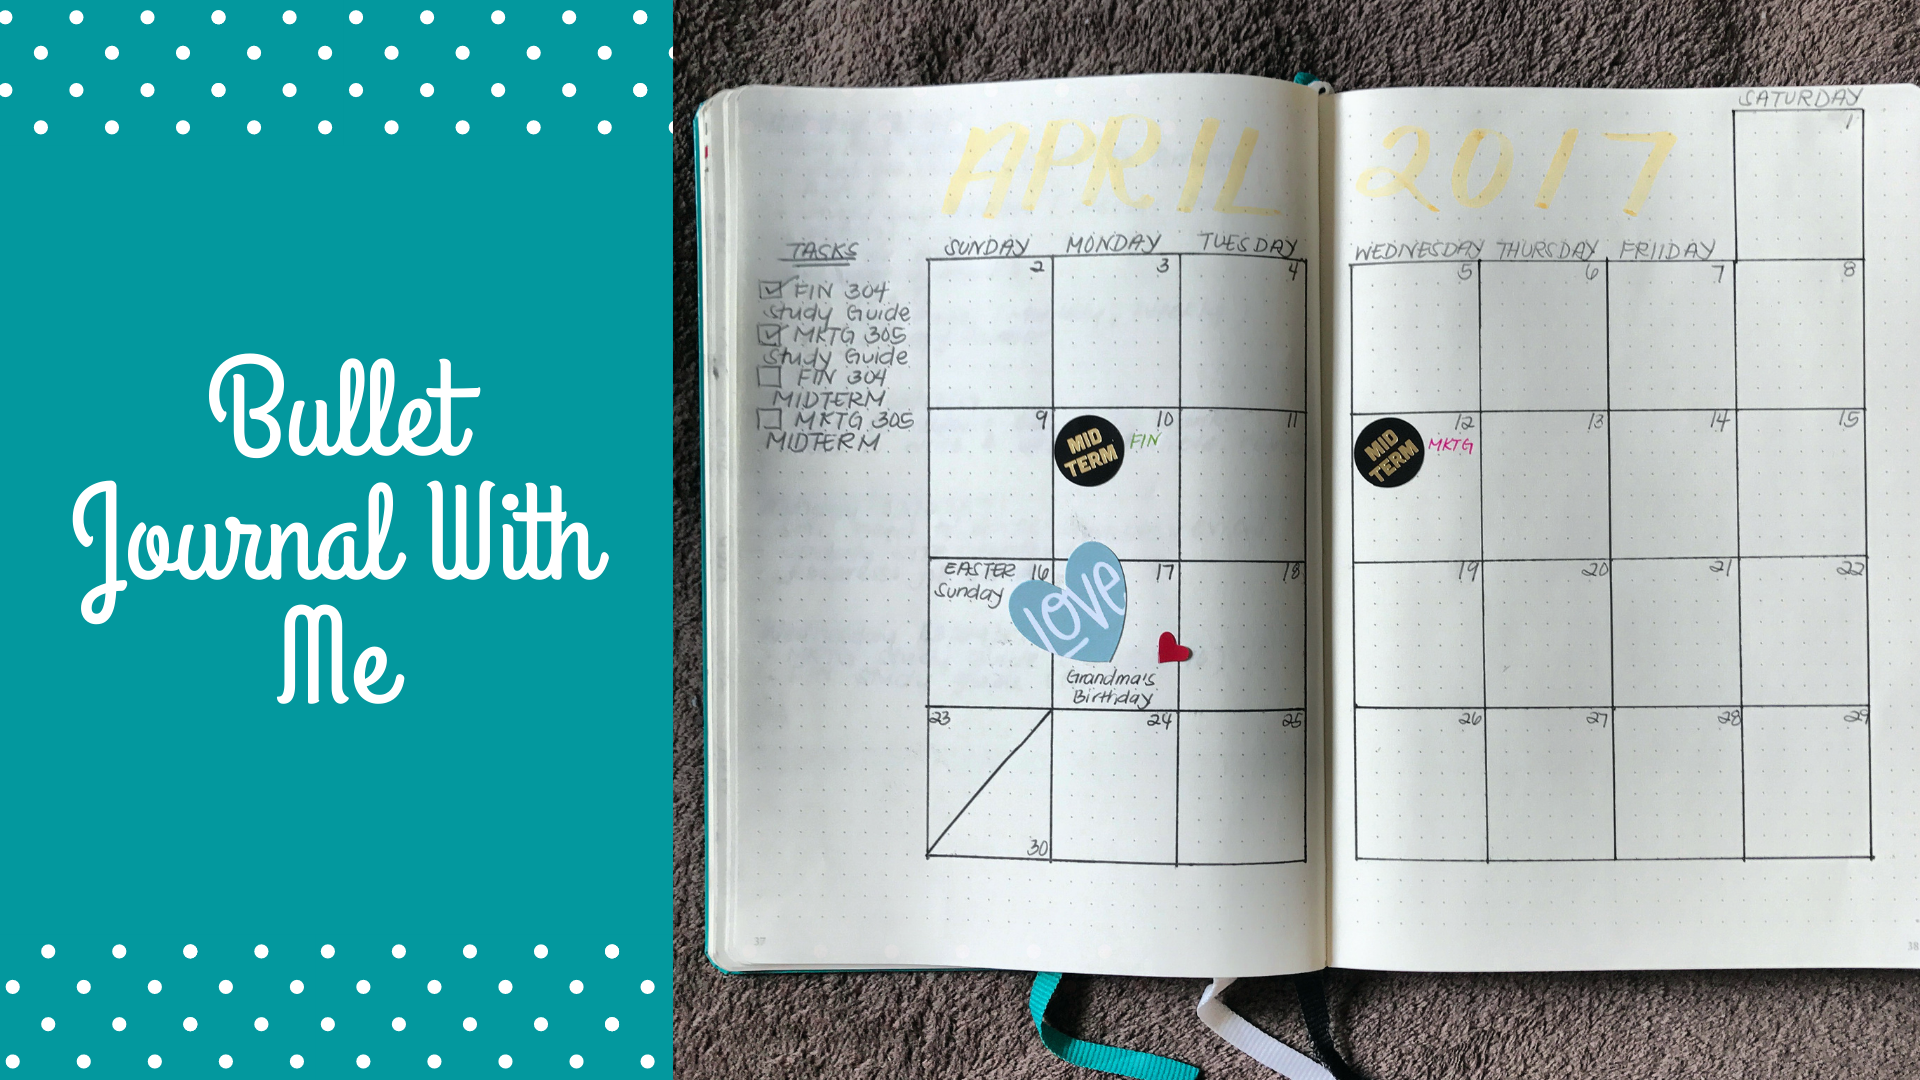 Bullet
Journal With
Me
APRIL 2017
TASKS
☑ FIN 304
Study Guide
☑ MKTG 305
Study Guide
☐ FIN 304
MIDTERM
☐ MKTG 305
MIDTERM
SUNDAY MONDAY TUESDAY WEDNESDAY THURSDAY FRIIDAY SATURDAY
1
2 3 4 5 6 7 8
9 10 11 12 13 14 15
MID
TERM
FIN
MID
TERM
MKTG
EASTER 16 17 18 19 20 21 22
Sunday
LOVE
Grandma's
Birthday
23 24 25 26 27 28 29
30
37
38